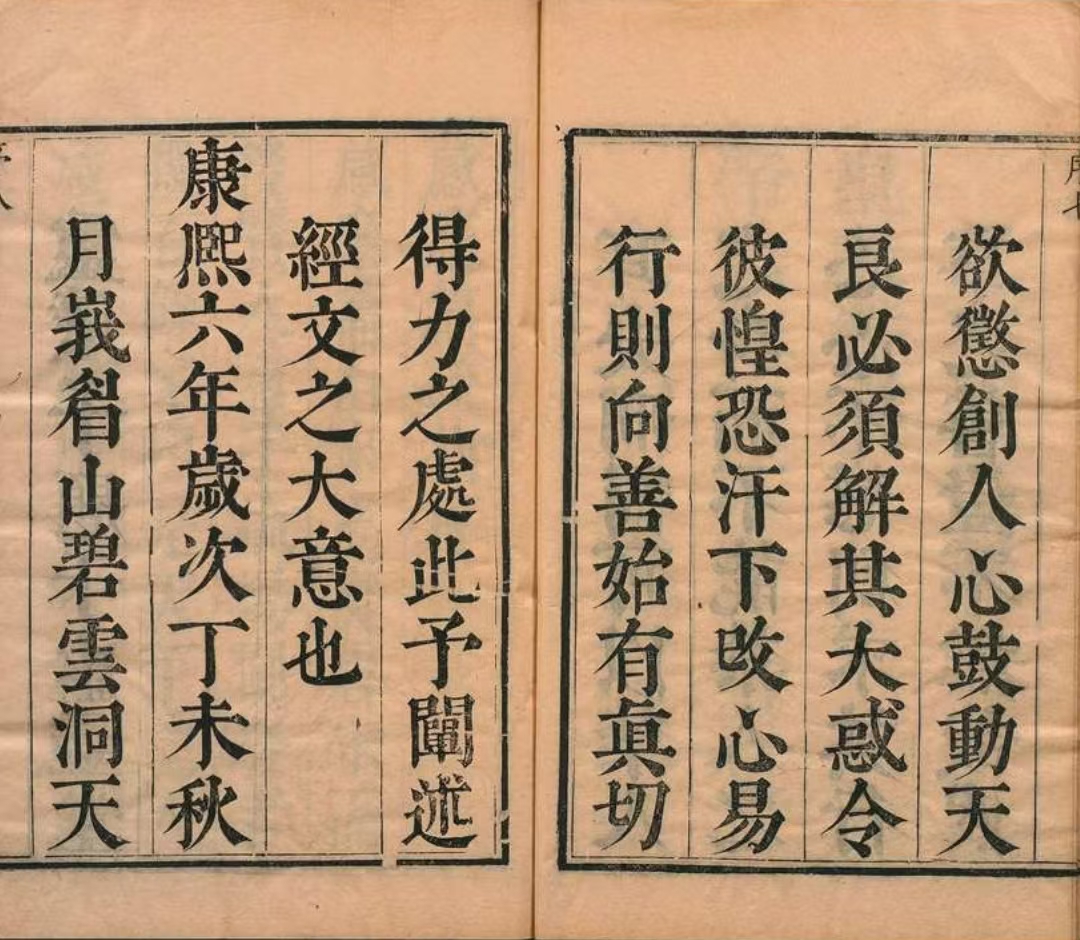 序七
欲懲創人心鼓動天
良必須解其大惑令
彼惶恐汗下改心易
行則向善始有眞切
得力之處此予闡述
經文之大意也
康熙六年歲次丁未秋
月峩眉山碧雲洞天
序八